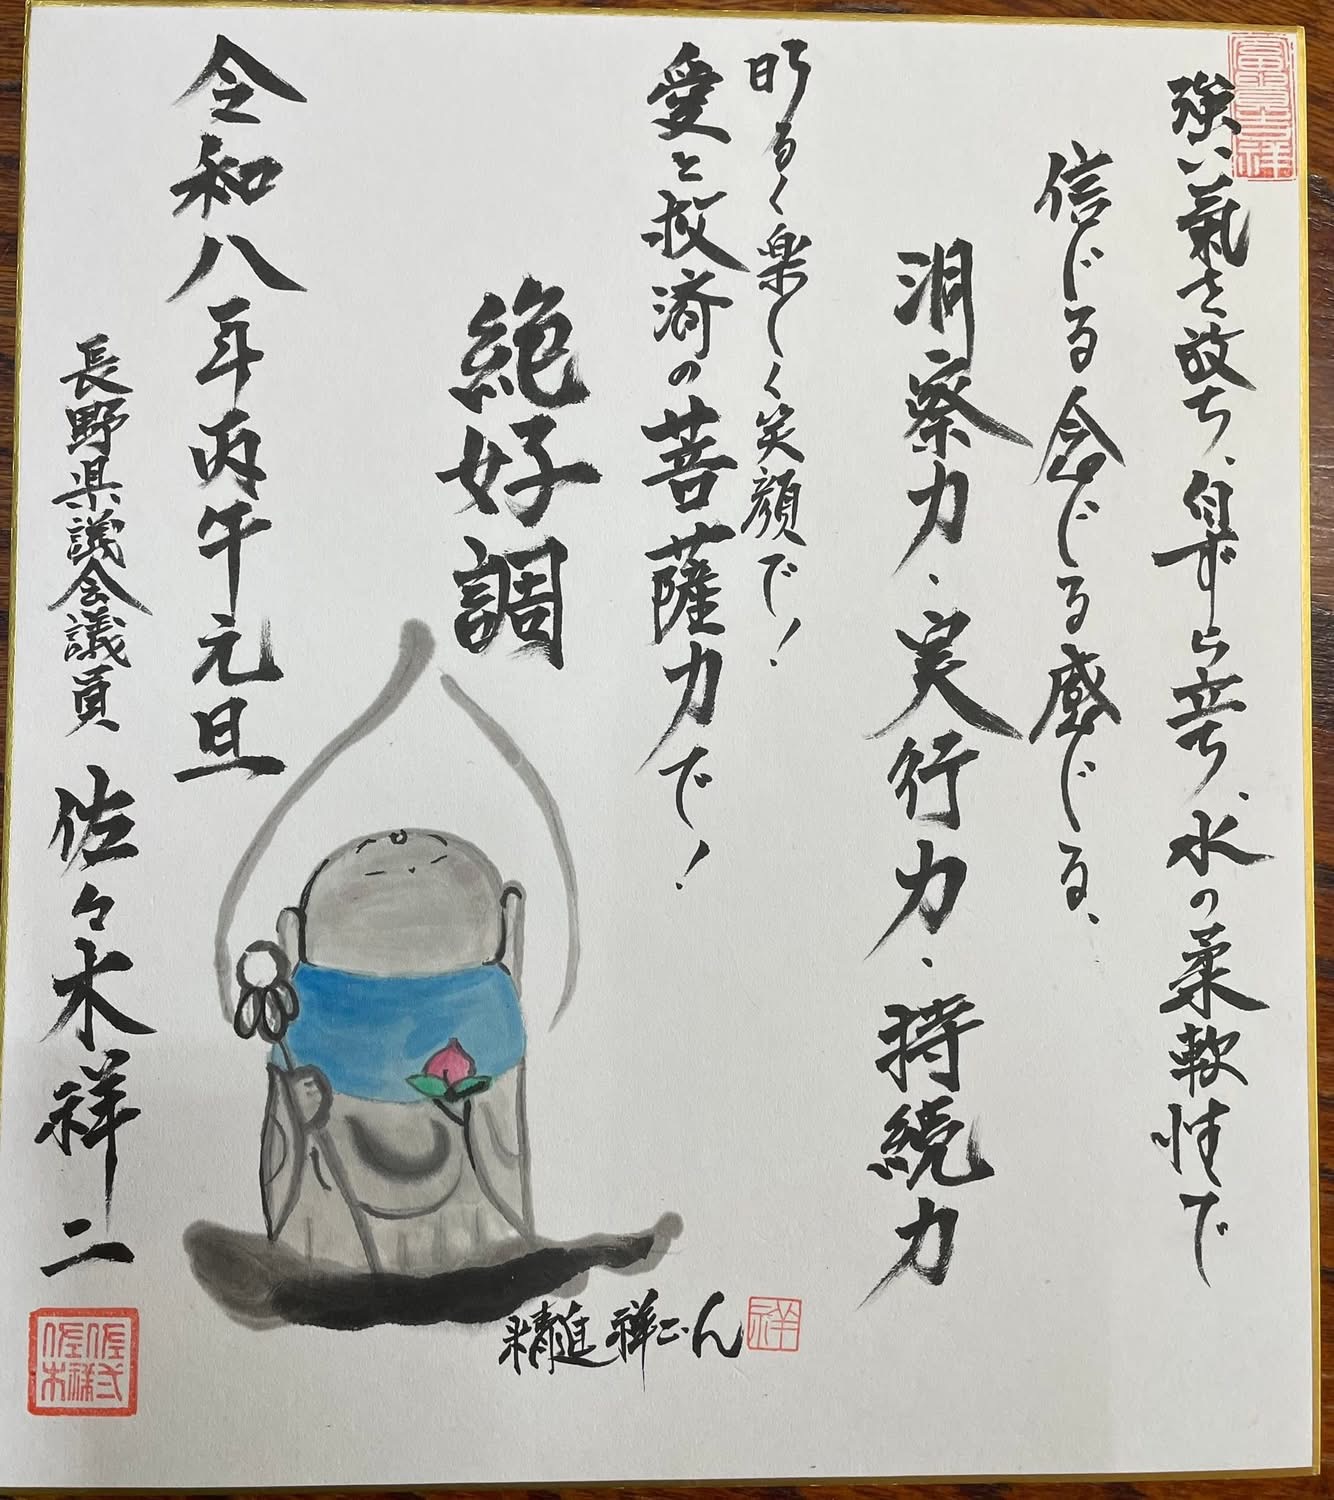 強い氣を放ち、自ずから立ち、水の柔軟性で
信じる念じる感じる、
洞察力・実行力・持続力
明るく楽しく笑顔で！
愛と救済の菩薩力で！
絶好調
令和八年丙午元旦
長野県議会議員 佐々木祥二
精進 祥ごん
祥